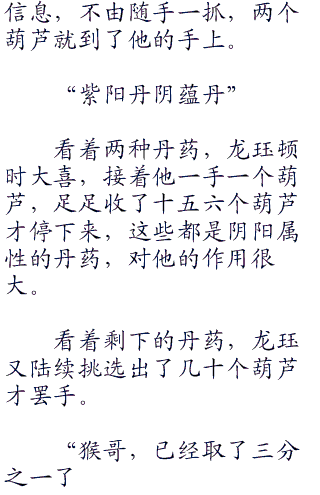 信息，不由随手一抓，两个
葫芦就到了他的手上。
“紫阳丹阴蕴丹”
看着两种丹药，龙珏顿
时大喜，接着他一手一个葫
芦，足足收了十五六个葫芦
才停下来，这些都是阴阳属
性的丹药，对他的作用很
大。
看着剩下的丹药，龙珏
又陆续挑选出了几十个葫芦
才罢手。
“猴哥，已经取了三分
之一了